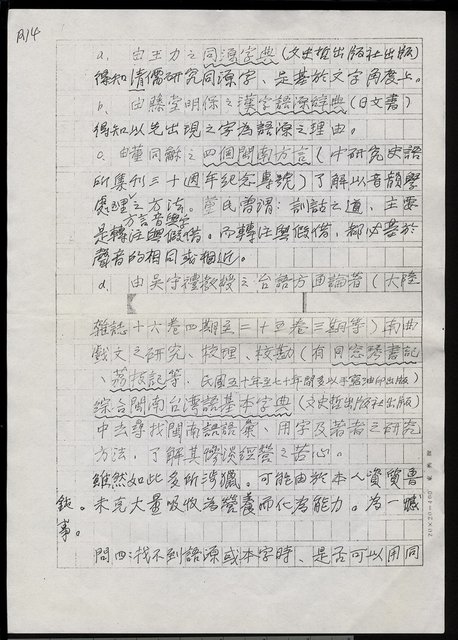 P.14
a. 由王力之同源字典(文史哲出版社出版)
得知清儒研究同源字、是基於文字角度上。
b. 由藤堂明保之漢字語源辞典(日文書)
得知以先出現之字為語源之理由。
c. 由董同龢之四個閩南方言(中研究史語
所集刊三十週年紀念專號)了解以音韻學
處理之方法。董氏曾謂:訓詁之道,主要
方言音學
是轉注與假借。而轉注與假借,都必基於
聲音的相同或相近。
d. 由吳守禮教授之台語方面論著(大陸
雜誌十六卷四期至二十五卷三期等)南曲
戲文之研究、校理、校勘(有同窓琴書記
、荔枝記等,民國五十年至七十年間多以手寫油印出版)
綜合閩南台灣語基本字典(文史哲出版社出版)
中去尋找閩南語語彙、用字及著者之研究
方法,了解其慘淡經營之苦心。
雖然如此多所涉獵。可能由於本人資質魯
鈍。未克大量吸收為營養而化為能力。為一憾
事。
問四:找不到語源或本字時、是否可以用同
20×20=400